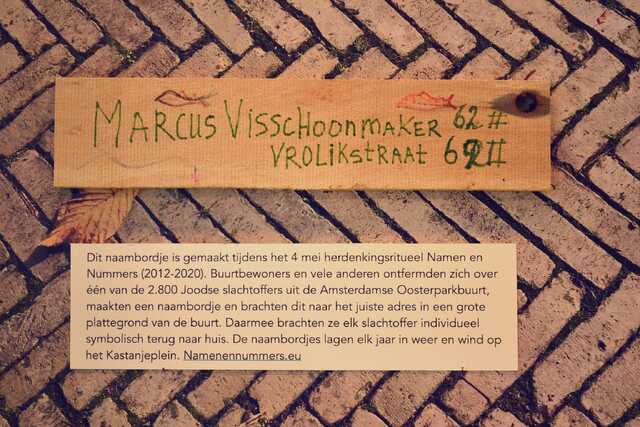 MARCUS VISSCHOONMAKER 62 II
VROLIKSTRAAT 62 II
Dit naambordje is gemaakt tijdens het 4 mei herdenkingsritueel Namen en
Nummers (2012-2020). Buurtbewoners en vele anderen ontfermden zich over
één van de 2.800 Joodse slachtoffers uit de Amsterdamse Oosterparkbuurt,
maakten een naambordje en brachten dit naar het juiste adres in een grote
plattegrond van de buurt. Daarmee brachten ze elk slachtoffer individueel
symbolisch terug naar huis. De naambordjes lagen elk jaar in weer en wind op
het Kastanjeplein. Namenennummers.eu